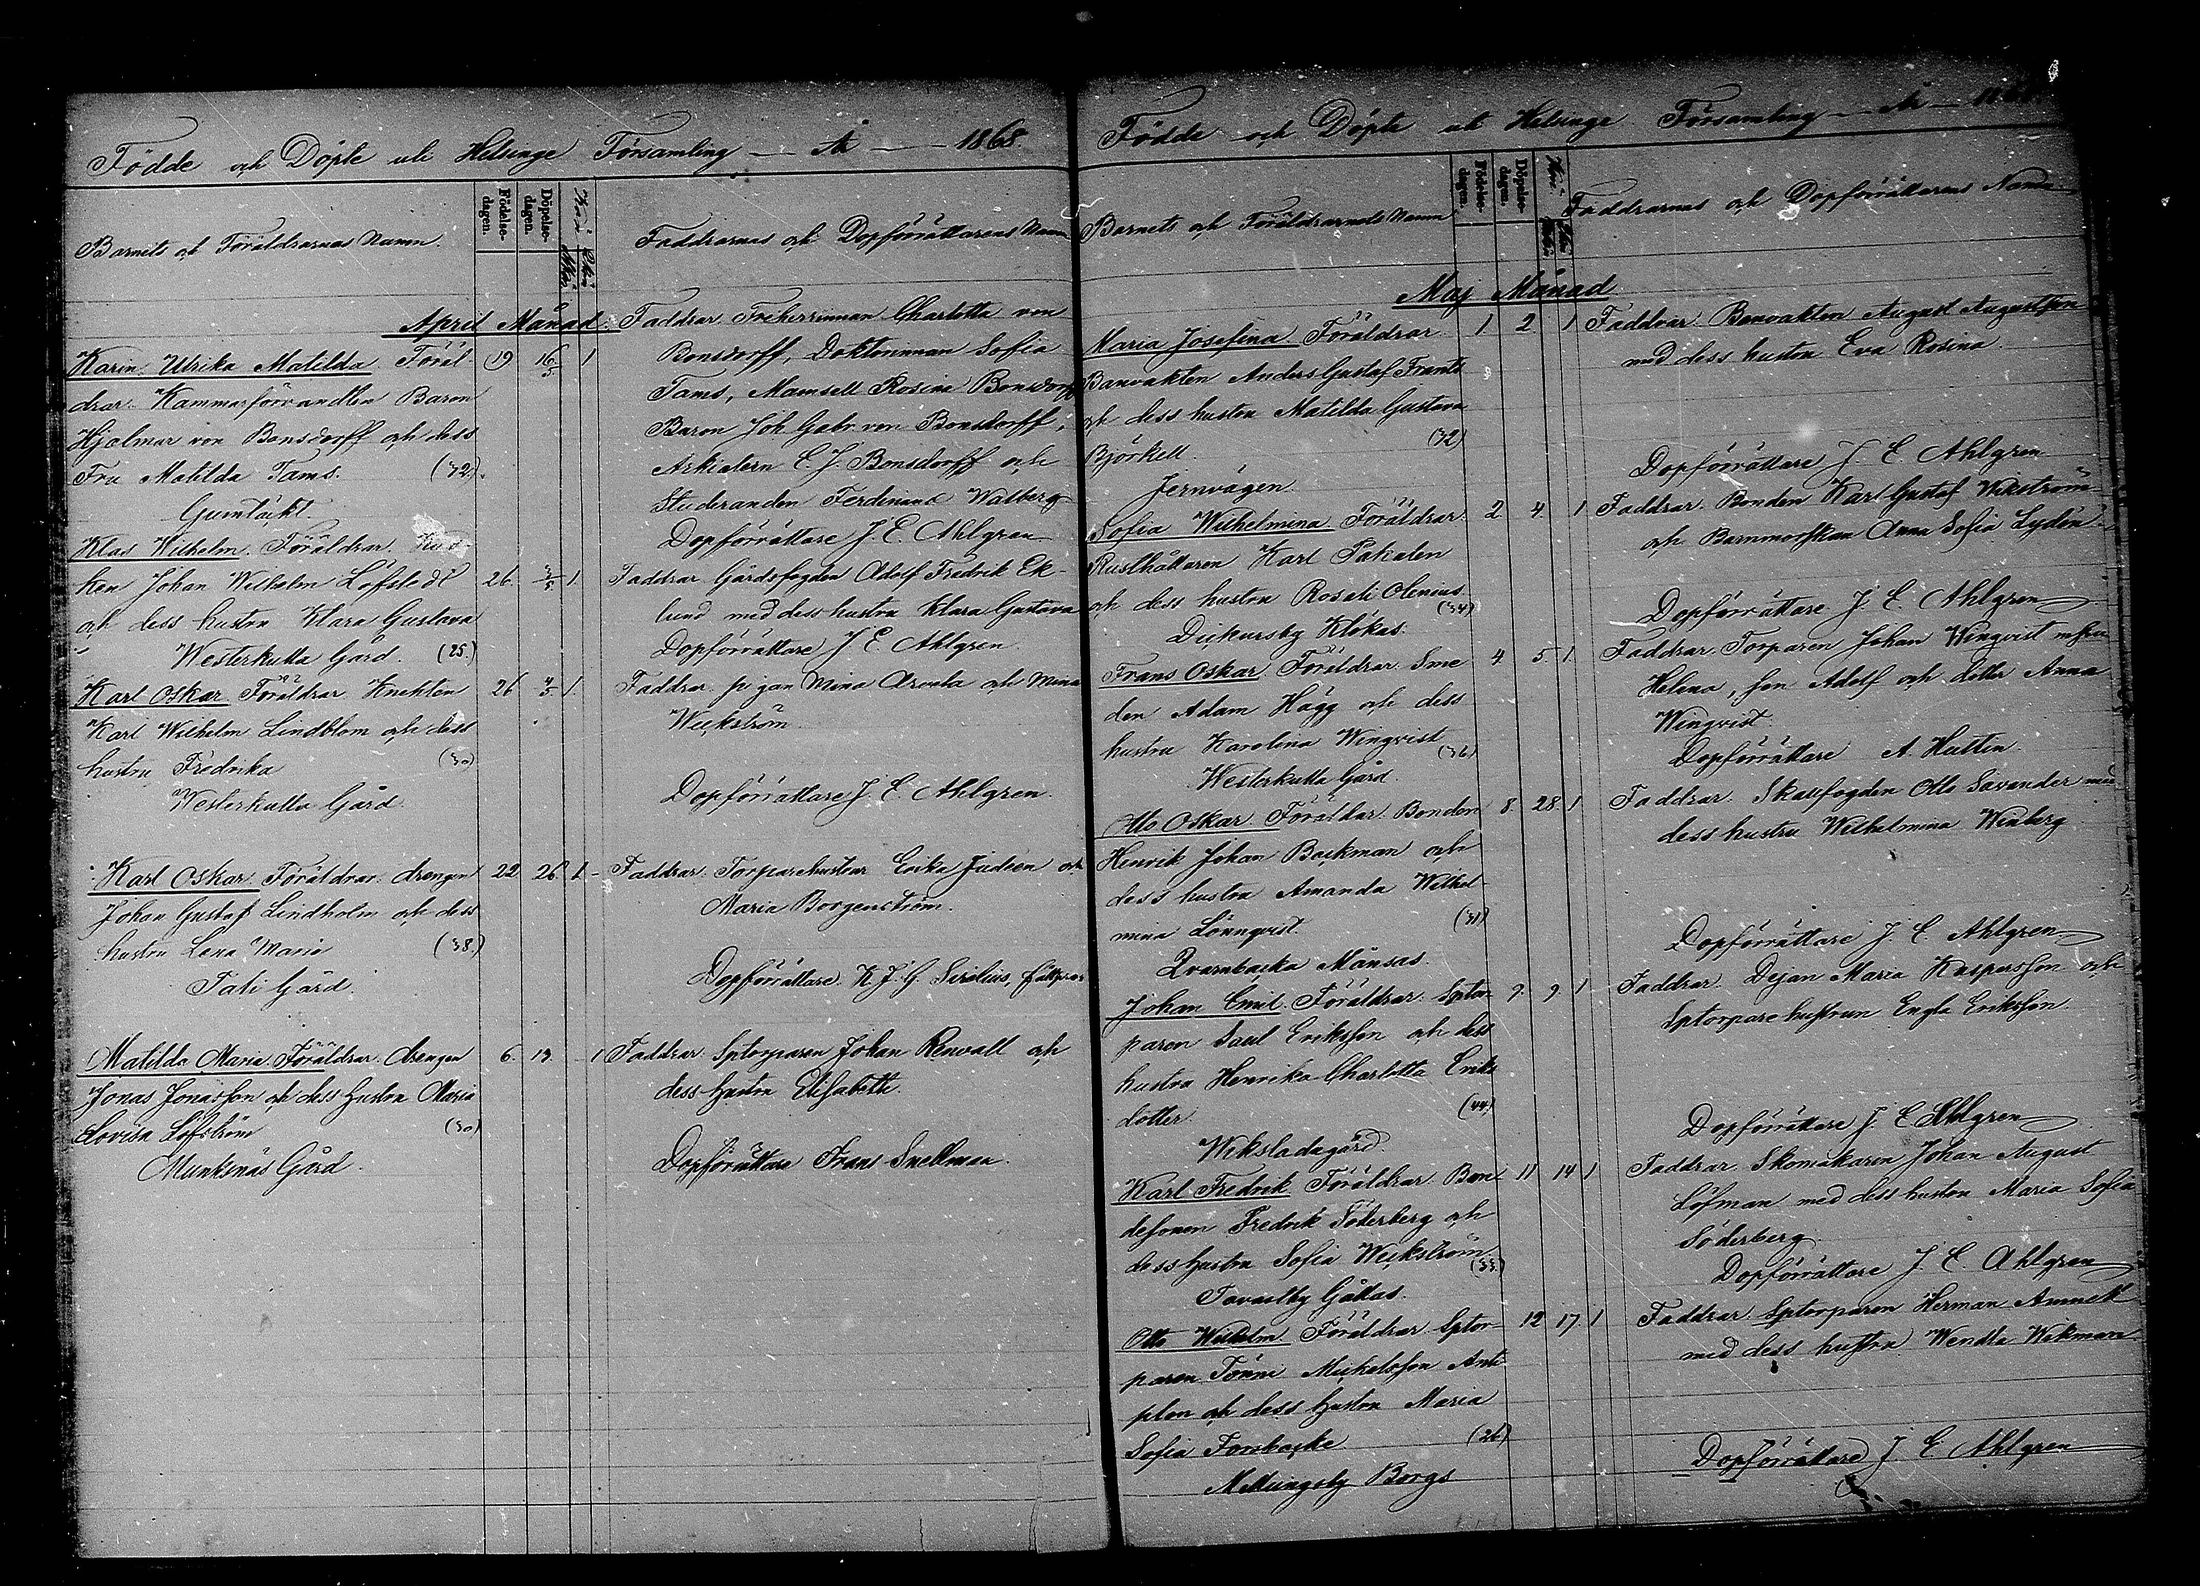 Födde och Döpte uti Helsinge Församling — År — 1868.
Barnets och Föräldrarnas Namn.
Födelse-dagen.
Döpelse-dagen.
Kön
Faddrarnas och Dopförrättarens Namn
April Månad.
Karin Ulrika Matilda. Föräl
drar. Kammarförvandten Baron
Hjalmar von Bonsdorff och dess
Fru Matilda Tams. (32).
Gumtäkt.
19 16/5 1
Faddrar. Friherrinnan Charlotta von
Bonsdorff, Doktorinnan Sofia
Tams, Mamsell Rosina Bonsdorff
Baron Joh. Gabr. von Bonsdorff,
Arkiatern E. J. Bonsdorff och
Studeranden Ferdinand Walberg
Dopförrättare J. E. Ahlgren
Klas Wilhelm. Föräldrar.
ken Johan Wilhelm Löfstedt
och dess hustru Klara Gustava
Westerkulla Gård. (25.)
26. 3/5 1.
Faddrar Gårdsfogden Adolf Fredrik Ek-
lund med dess hustru Klara Gustava
Dopförrättare J. E. Ahlgren.
Karl Oskar. Föräldrar Knekten
Karl Wilhelm Lindblom och dess
hustru Fredrika (30)
Westerkulla Gård.
26 4/5 1.
Faddrar pigan Mina Arvela och Mina
Weckström.
Dopförrättare J. E. Ahlgren.
Karl Oskar Föräldrar. drengen
Johan Gustaf Lindholm och dess
hustru Lena Maria (38.)
Tali Gård.
22 26 1.
Faddrar Torparehustrur Erika Judeen och
Maria Borgenström.
Dopförrättare K. J. G. Sirelius,
Matilda Maria. Föräldrar. drengen
Jonas Jonasson och dess hustru Maria
Lovisa Löfström (30)
Munksnäs Gård.
6. 19. 1
Faddrar. Sptorparen Johan Renvall och
dess hustru Elisabeth.
Dopförrättare Frans Snellman.
Födde och Döpte uti Helsinge Församling — År — 1868.
Barnets och Föräldrarnas Namn
Födelse-dagen.
Döpelse-dagen.
Kön
Faddrarnas och Dopförrättarens Namn
Maj Månad
Maria Josefina Föräldrar.
Banvakten Anders Gustaf Frants
och dess hustru Matilda Gustava
Björkell. (32)
Jernvägen.
1 2 1
Faddrar Banvakten August Augustsson
med dess hustru Eva Rosina.
Dopförrättare J. E. Ahlgren
Sofia Wilhelmina Föräldrar.
Rusthållaren Karl Pakalen
och dess hustru Rosali Olenius
(34)
Dickursby Klökas.
2 4. 1
Faddrar. Bonden Karl Gustaf Wikström
och Barnmorskan Anna Sofia Lydén
Dopförrättare J. E. Ahlgren
Frans Oskar Föräldrar. Sme
den Adam Hägg och dess
hustru Karolina Winqvist
(36)
Westerkulla Gård.
4 5. 1.
Faddrar Torparen Johan Winqvist
Helena, son Adolf och dotter Anna
Winqvist.
Dopförrättare A. Hutten.
Otto Oskar Föräldar. Bonden
Henrik Johan Backman och
dess hustru Amanda Wilhel-
mina Lönnqvist. (31)
Qvarnbacka Månsas.
8. 28 1.
Faddrar. Skallfogden Otto Savander med
dess hustru Wilhelmina Winberg
Dopförrättare J. E. Ahlgren
Johan Emil Föräldrar. Sptor-
paren Saul Eriksson och dess
hustru Henrika Charlotta Eriks
dotter. (44)
Wiksladagård.
9. 9. 1
Faddrar. Dejan Maria Kaspersson och
Sptorparehustrun Engla Eriksson.
Dopförrättare J. E. Ahlgren
Karl Fredrik Föräldrar. Bon
desonen Fredrik Söderberg och
dess hustru Sofia Weckström
(33.)
Tavastby Gåttas.
11 14 1
Faddrar. Skomakaren Johan August
Löfman med dess hustru Maria Sofia
Söderberg.
Dopförrättare J. E. Ahlgren
Otto Wilhelm Föräldrar Sptor-
paren Tönni Mickelsson Anti
plen och dess hustru Maria
Sofia Forsbacke (26)
Mellungsby Borgs
12 17. 1
Faddrar Sptorparen Herman Ammell
med dess hustru Wendla Wikman
Dopförrättare J. E. Ahlgren